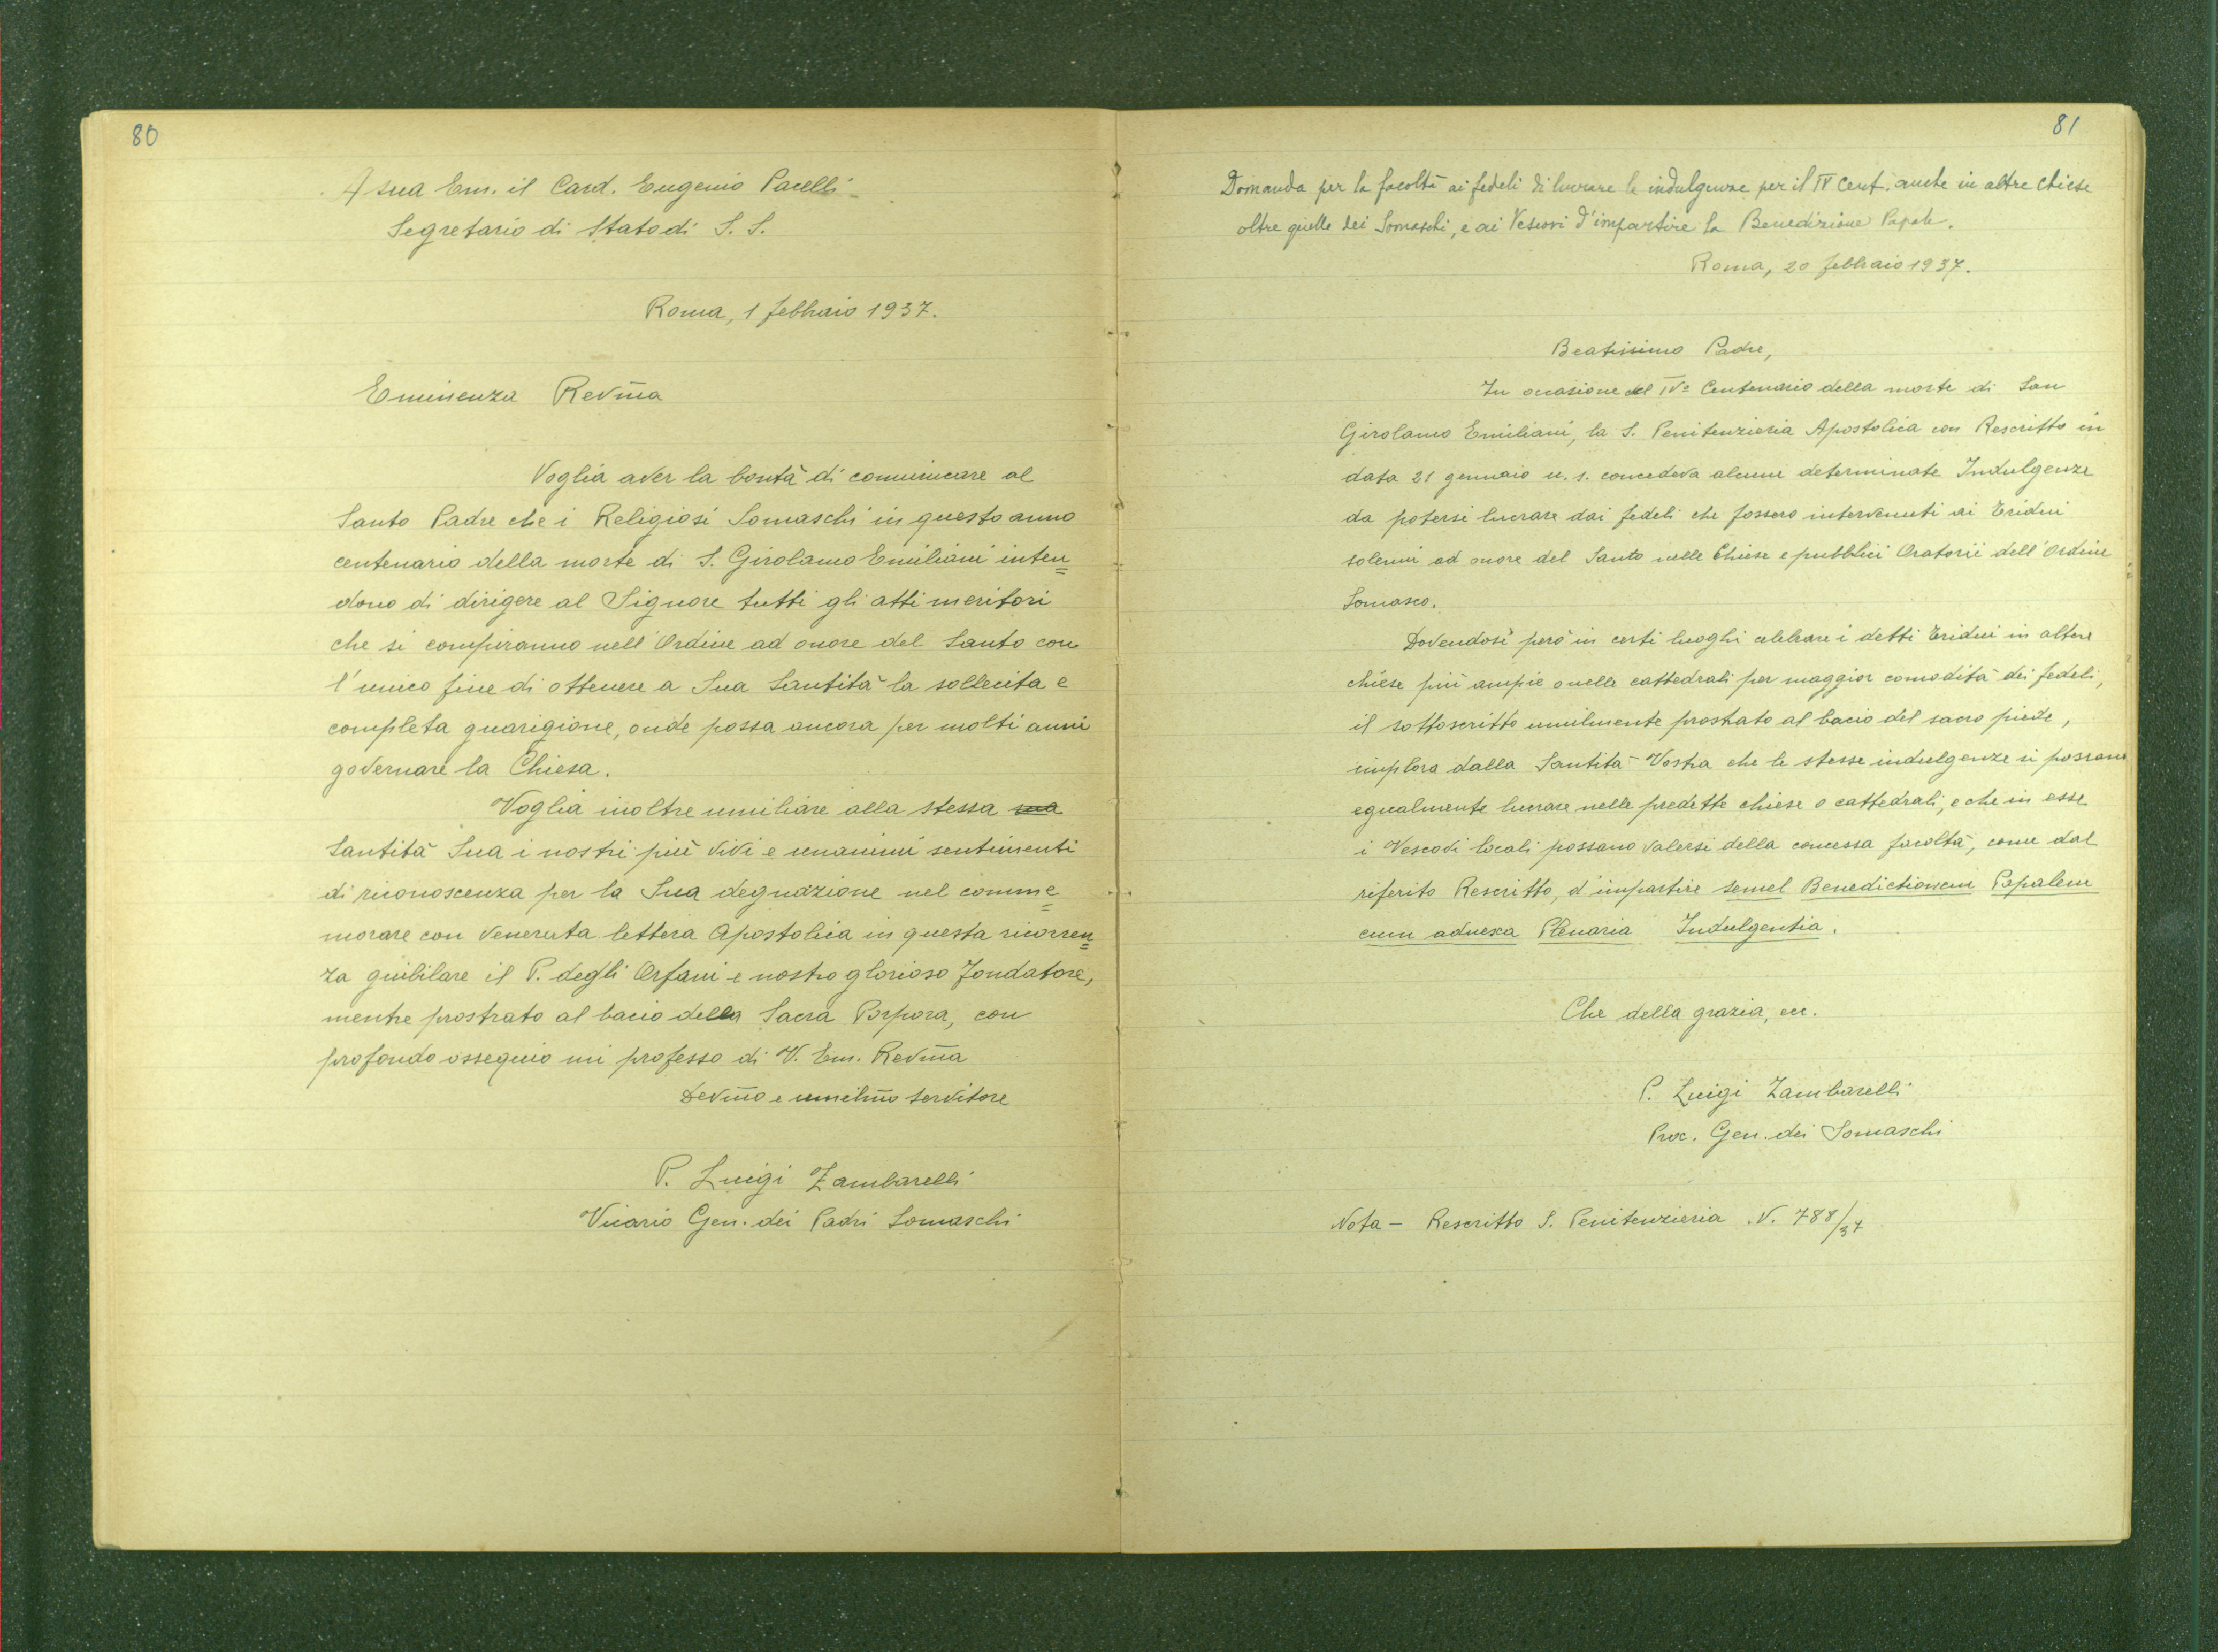 80
A sua Em. il Card. Eugenio Pacelli
Segretario di Stato di S. S.
Roma, 1 febbraio 1937.
Eminenza Revm̃a
Voglia aver la bontà di comunicare al
Santo Padre che i Religiosi Somaschi in questo anno
centenario della morte di S. Girolamo Emiliani inten=
dono di dirigere al Signore tutti gli atti meritori
che si compiranno nell'Ordine ad onore del Santo con
l'unico fine di ottenere a Sua Santità la sollecita e
completa guarigione, onde possa ancora per molti anni
governare la Chiesa.
Voglia inoltre umiliare alla stessa sua
Santità Sua i nostri più vivi e unanimi sentimenti
di riconoscenza per la Sua degnazione nel comme=
morare con venerata lettera Apostolica in questa ricorren=
za giubilare il P. degli Orfani e nostro glorioso Fondatore,
mentre prostrato al bacio della Sacra Porpora, con
profondo ossequio mi professo di V. Em. Revm̃a
Devm̃o e umilm̃o servitore
P. Luigi Zambarelli
Vicario Gen. dei Padri Somaschi
81
Domanda per la facoltà ai fedeli di lucrare le indulgenze per il IV Cent. anche in altre Chiese
oltre quelle dei Somaschi, e ai Vescovi d'impartire la Benedizione Papale.
Roma, 20 febbraio 1937.
Beatissimo Padre,
In occasione del IVº Centenario della morte di San
Girolamo Emiliani, la S. Penitenzieria Apostolica con Rescritto in
data 21 gennaio u. s. concedeva alcune determinate Indulgenze
da potersi lucrare dai fedeli che fossero intervenuti ai Tridui
solenni ad onore del Santo nelle Chiese e pubblici Oratorii dell'Ordine
Somasco.
Dovendosi però in certi luoghi celebrare i detti Tridui in altere
chiese più ampie o nelle cattedrali per maggior comodità dei fedeli,
il sottoscritto umilmente prostrato al bacio del sacro piede,
implora dalla Santità Vostra che le stesse indulgenze si possano
egualmente lucrare nelle predette chiese o cattedrali, e che in esse
i Vescovi locali possano valersi della concessa facoltà, come dal
riferito Rescritto, d'impartire semel Benedictionem Papalem
cum adnexa Plenaria Indulgentia.
Che della grazia, ecc.
P. Luigi Zambarelli
Proc. Gen. dei Somaschi
Nota - Rescritto S. Penitenzieria N. 788/37